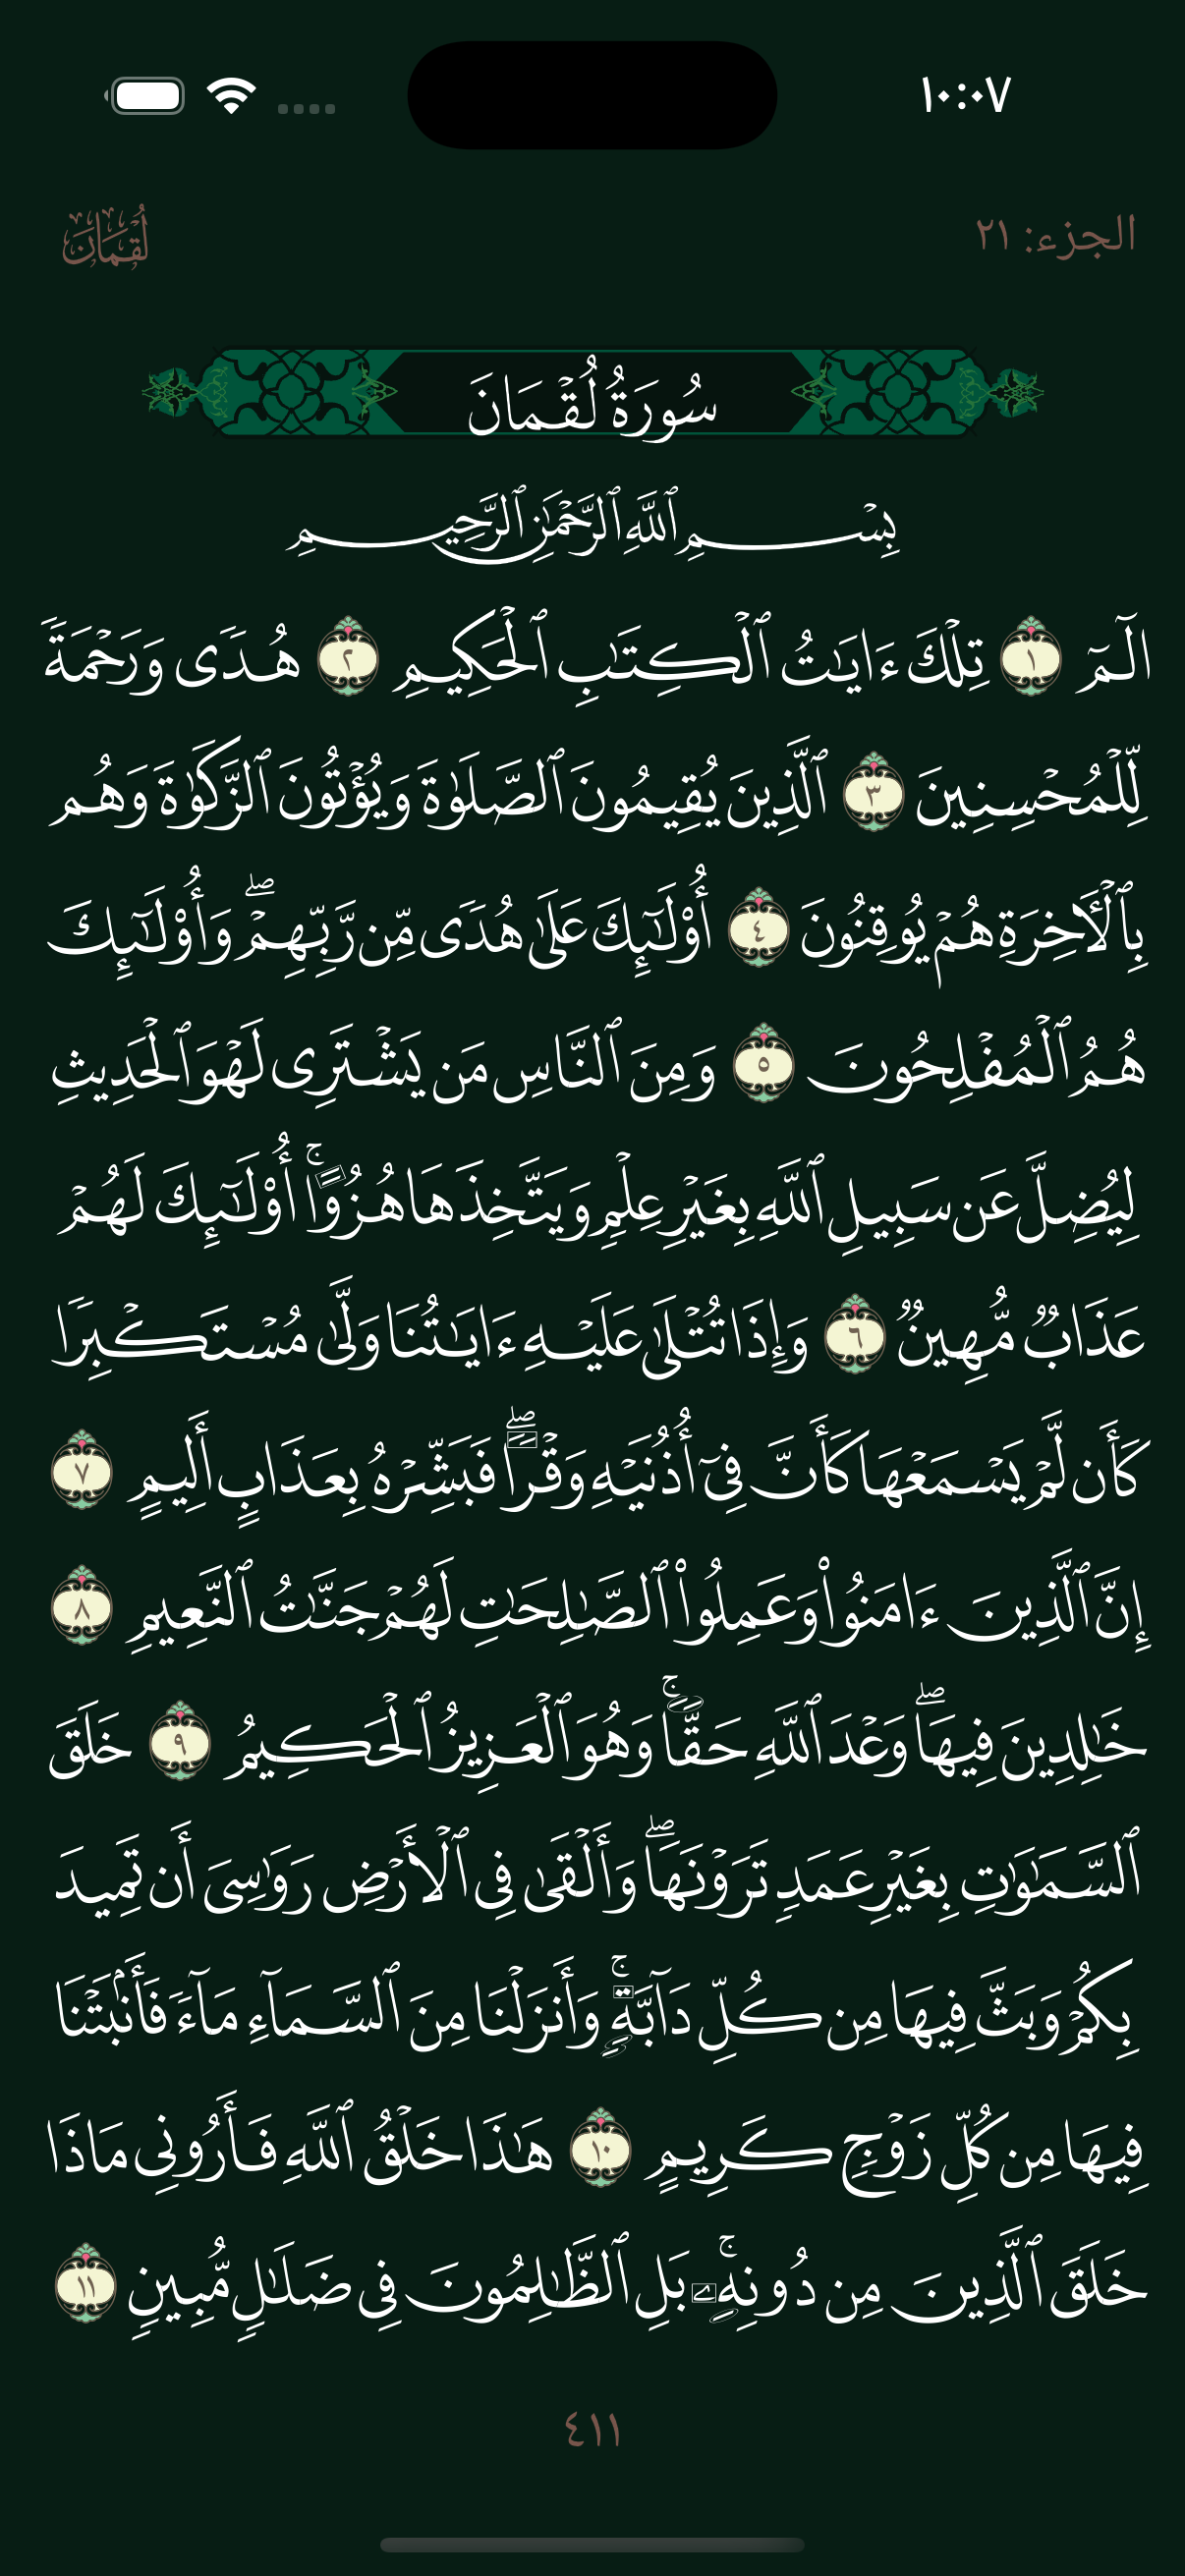 ١٠:٠٧
الجزء: ٢١
لُقۡمَان
سُورَةُ لُقۡمَانَ
بِسۡمِ ٱللَّهِ ٱلرَّحۡمَٰنِ ٱلرَّحِيمِ
الٓمٓ ١ تِلۡكَ ءَايَٰتُ ٱلۡكِتَٰبِ ٱلۡحَكِيمِ ٢ هُدٗى وَرَحۡمَةٗ
لِّلۡمُحۡسِنِينَ ٣ ٱلَّذِينَ يُقِيمُونَ ٱلصَّلَوٰةَ وَيُؤۡتُونَ ٱلزَّكَوٰةَ وَهُم
بِٱلۡأٓخِرَةِ هُمۡ يُوقِنُونَ ٤ أُوْلَٰٓئِكَ عَلَىٰ هُدٗى مِّن رَّبِّهِمۡۖ وَأُوْلَٰٓئِكَ
هُمُ ٱلۡمُفۡلِحُونَ ٥ وَمِنَ ٱلنَّاسِ مَن يَشۡتَرِي لَهۡوَ ٱلۡحَدِيثِ
لِيُضِلَّ عَن سَبِيلِ ٱللَّهِ بِغَيۡرِ عِلۡمٖ وَيَتَّخِذَهَا هُزُوًاۚ أُوْلَٰٓئِكَ لَهُمۡ
عَذَابٞ مُّهِينٞ ٦ وَإِذَا تُتۡلَىٰ عَلَيۡهِ ءَايَٰتُنَا وَلَّىٰ مُسۡتَكۡبِرٗا
كَأَن لَّمۡ يَسۡمَعۡهَا كَأَنَّ فِيٓ أُذُنَيۡهِ وَقۡرٗاۖ فَبَشِّرۡهُ بِعَذَابٍ أَلِيمٍ ٧
إِنَّ ٱلَّذِينَ ءَامَنُواْ وَعَمِلُواْ ٱلصَّٰلِحَٰتِ لَهُمۡ جَنَّٰتُ ٱلنَّعِيمِ ٨
خَٰلِدِينَ فِيهَاۖ وَعۡدَ ٱللَّهِ حَقّٗاۚ وَهُوَ ٱلۡعَزِيزُ ٱلۡحَكِيمُ ٩ خَلَقَ
ٱلسَّمَٰوَٰتِ بِغَيۡرِ عَمَدٖ تَرَوۡنَهَاۖ وَأَلۡقَىٰ فِي ٱلۡأَرۡضِ رَوَٰسِيَ أَن تَمِيدَ
بِكُمۡ وَبَثَّ فِيهَا مِن كُلِّ دَآبَّةٖۚ وَأَنزَلۡنَا مِنَ ٱلسَّمَآءِ مَآءٗ فَأَنۢبَتۡنَا
فِيهَا مِن كُلِّ زَوۡجٖ كَرِيمٍ ١٠ هَٰذَا خَلۡقُ ٱللَّهِ فَأَرُونِي مَاذَا
خَلَقَ ٱلَّذِينَ مِن دُونِهِۦۚ بَلِ ٱلظَّٰلِمُونَ فِي ضَلَٰلٖ مُّبِينٖ ١١
٤١١